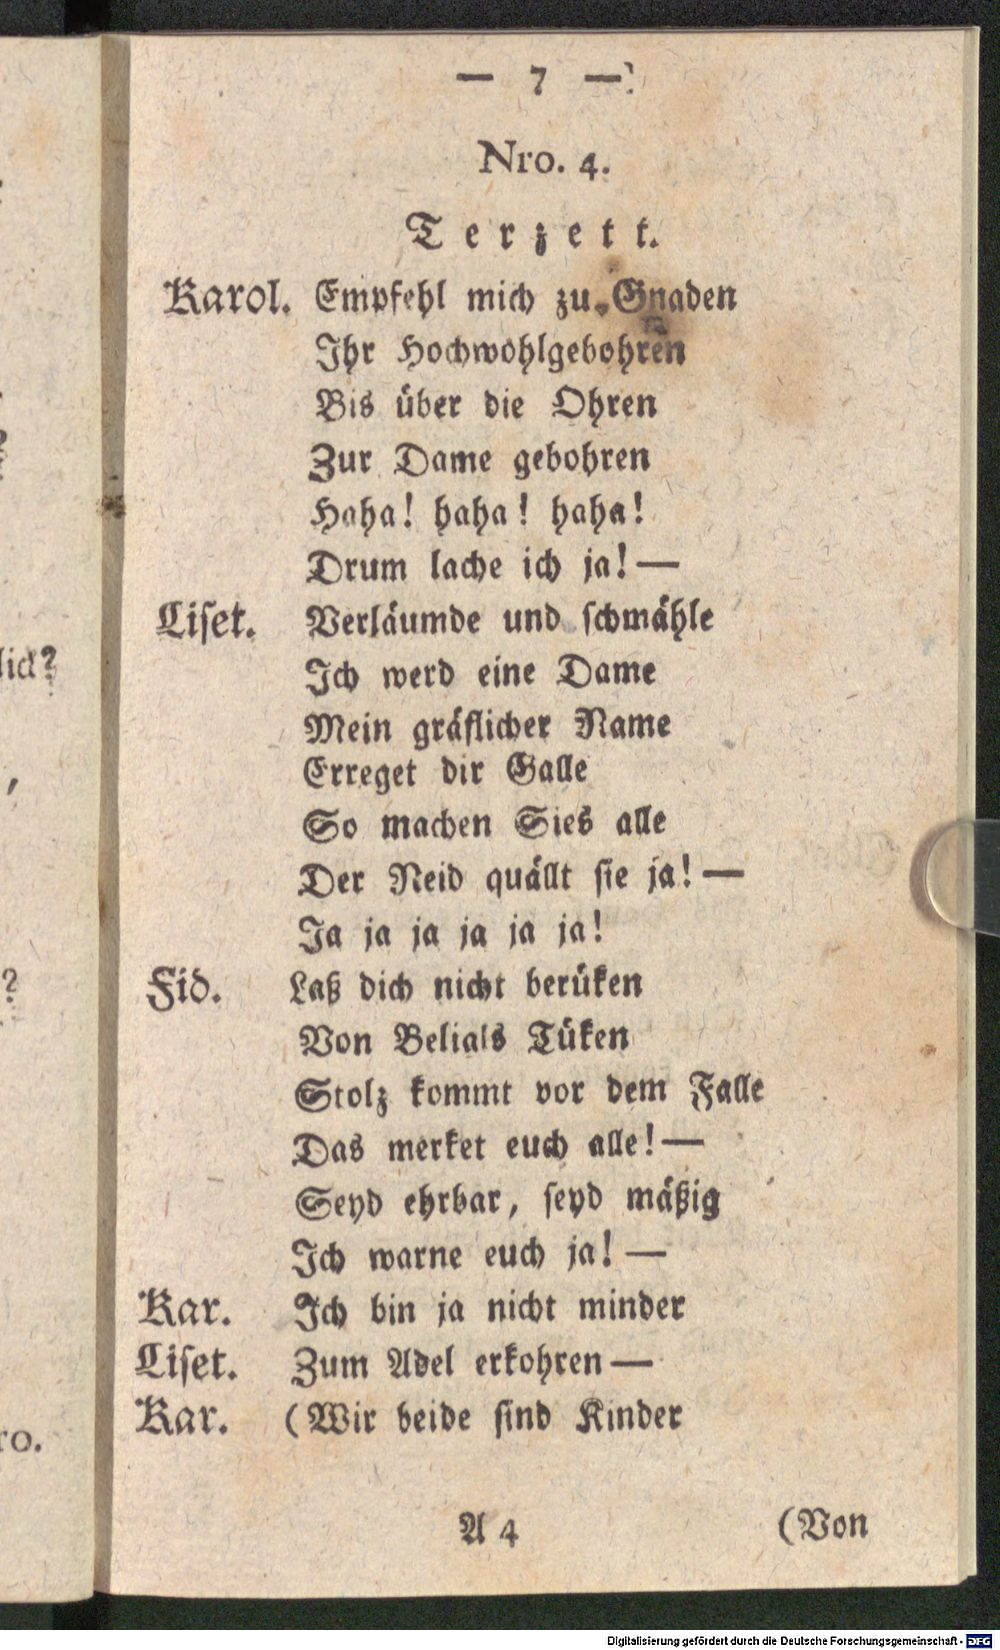 — 7 —
Nro. 4.
Terzett.
Karol. Empfehl mich zu Gnaden
Ihr Hochwohlgebohren
Bis über die Ohren
Zur Dame gebohren
Haha! haha! haha!
Drum lache ich ja! —
Liset. Verläumde und schmähle
Ich werd eine Dame
Mein gräflicher Name
Erreget dir Galle
So machen Sies alle
Der Neid quällt sie ja! —
Ja ja ja ja ja ja!
Fid. Laß dich nicht berüken
Von Belials Tüken
Stolz kommt vor dem Falle
Das merket euch alle! —
Seyd ehrbar, seyd mäßig
Ich warne euch ja! —
Kar. Ich bin ja nicht minder
Liset. Zum Adel erkohren —
Kar. (Wir beide sind Kinder
A 4 (Von
lick?
,
?
ro.
Digitalisierung gefördert durch die Deutsche Forschungsgemeinschaft - DFG